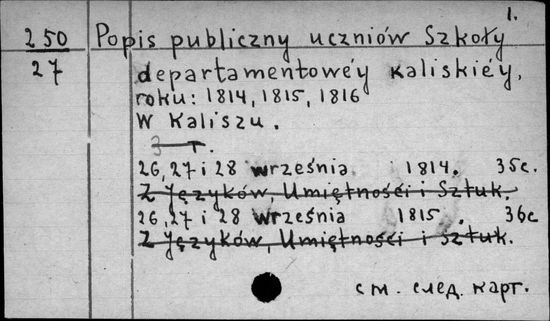 1.
250 Popis publiczny uczniów Szkoły
27 departamentowéy kaliskiéy,
roku: 1814, 1815, 1816
W Kaliszu.
3 T.
26, 27 i 28 września 1814. 35c.
Z Języków, Umiętności i Sztuk.
26, 27 i 28 września 1815. 36c
Z Języków, Umiętności i Sztuk.
см. след. карт.